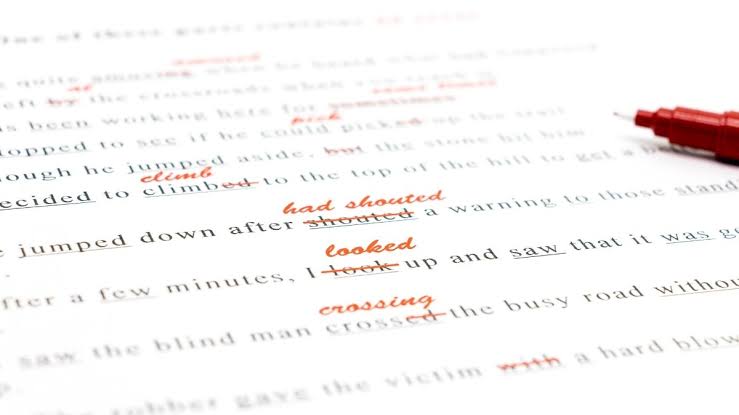 One of these
quite amazing when he heard what had happened
at
left by the crossroads when you
some times
has been working here for sometimes
pick
stopped to see if he could picked up the trail
though he jumped aside, but the stone hit him
climb
decided to climbed to the top of the hill to get a
had shouted
jumped down after shouted a warning to those standi
looked
fter a few minutes, I look up and saw that it was go
crossing
saw the blind man crossed the busy road withou
robber gave the victim with a hard blow